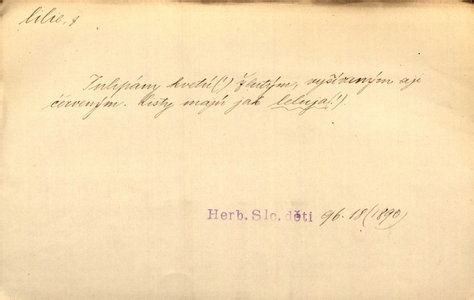 lilie, f
Tulipány kvetú(!) žlutým, vyšívaným aji
červeným. Listy majú jak leluja(!)
Herb. Slc. děti 96. 18 (1890)